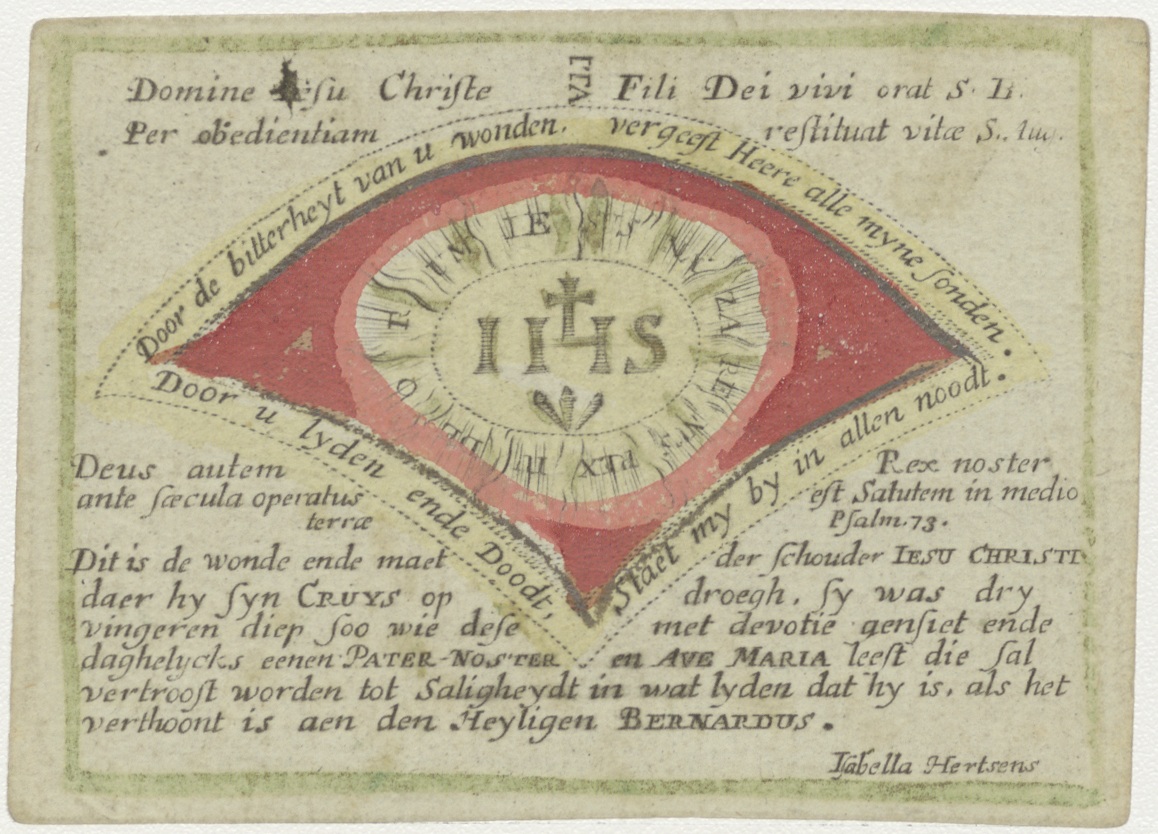 Domine Iesu Christe Fili Dei vivi orat S. B.
VITA
Per obedientiam restituat vitæ S. Aug.
Door de bitterheyt van u wonden. vergeeft Heere alle myne sonden.
IESUS NAZARENUS
IHS
Door u lyden ende Doodt, Staet my by in allen noodt.
Deus autem Rex noster
ante sæcula operatus est Salutem in medio
terræ Psalm.73.
Dit is de wonde ende maet der schouder IESU CHRISTI
daer hy syn CRUYS op droegh, sy was dry
vingeren diep soo wie dese met devotie aensiet ende
daghelycks eenen PATER-NOSTER en AVE MARIA leest die sal
vertroost worden tot Saligheydt in wat lyden dat hy is, als het
verthoont is aen den Heyligen BERNARDUS.
Isabella Hertsens